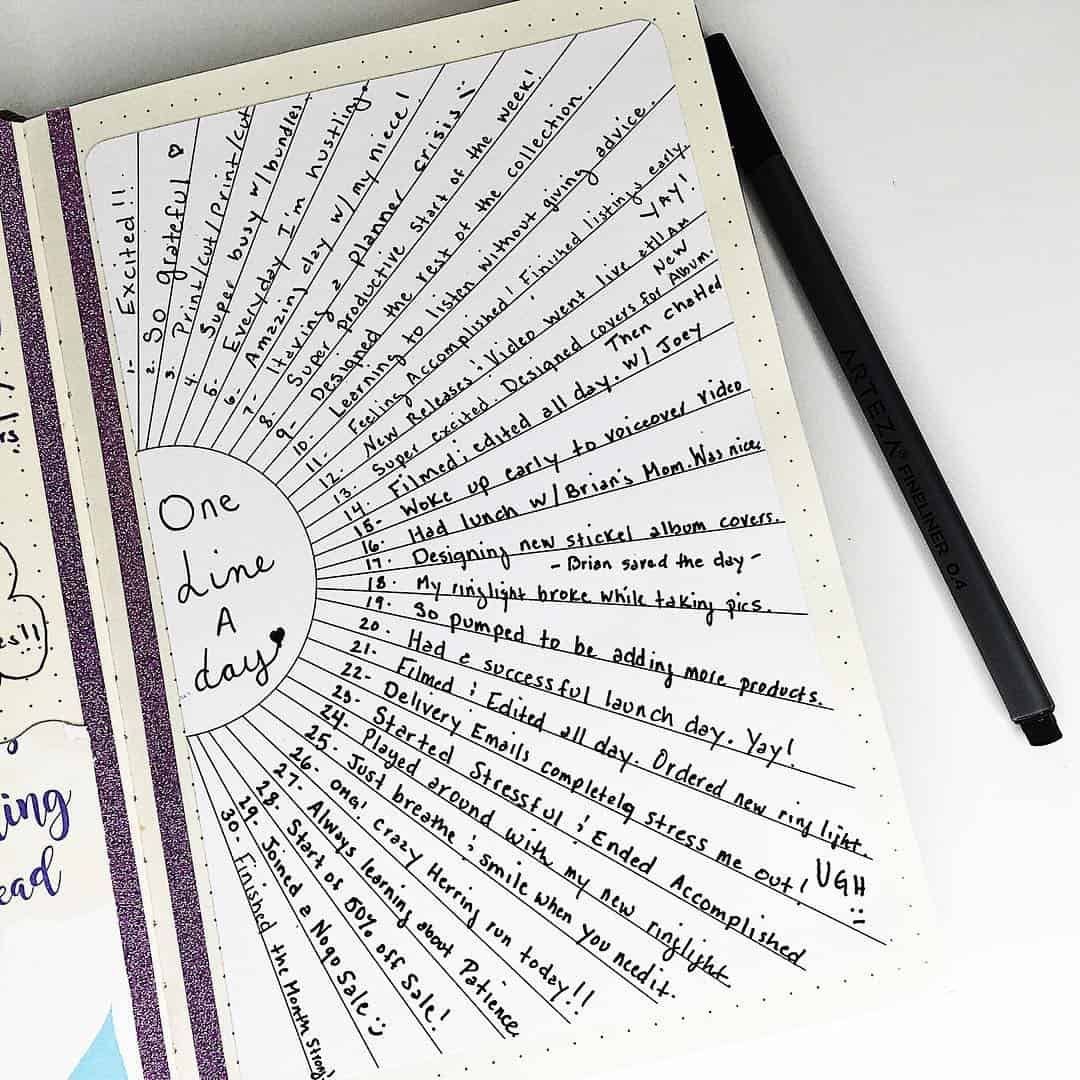 One
Line
A
day
1- Excited!!
2. So grateful
3. Print/Cut/Print/Cut
4. Super busy w/bundles.
5- Everyday I'm hustling.
6- Amazing day w/ my niece!
7- Having a planner crisis
8. Super productive start of the week!
9- Designed the rest of the collection.
10. Learning to listen without giving advice.
11- Feeling Accomplished! Finished listings early.
12. New Releases & Video went live at 11 AM YAY!
13. Super excited. Designed covers for New Album.
14. Filmed & edited all day. Then chatted w/ Joey
15- Woke up early to voiceover video
16. Had lunch w/ Brian's Mom. Was nice
17. Designing new sticker album covers.
- Brian saved the day -
18. My ringlight broke while taking pics.
19. So pumped to be adding more products.
20. Had a successful launch day. Yay!
21. Filmed & Edited all day. Ordered new ring light.
22- Delivery Emails completely stress me out! UGH
23- Started Stressful & Ended Accomplished
24. Played around with my new ringlight
25. Just breathe & smile when you need it.
26- OMG! crazy Herring run today!!
27- Always learning about Patience
28. Start of 50% off Sale!
29- Joined a Nogo Sale
30- Finished the Month Strong!
ARTEZA® FINELINER 0.4
ing
ead